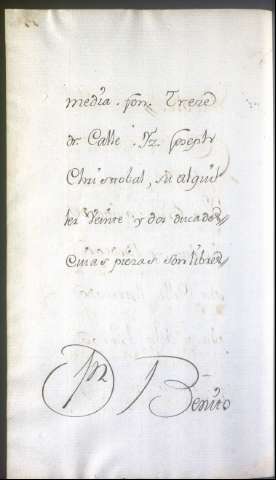 media. son. Treze
dr. Calle. Jz. Joseph
Christobal, su alqui
ler Veinte y dos ducados
Cuias piezas son libres
Benito